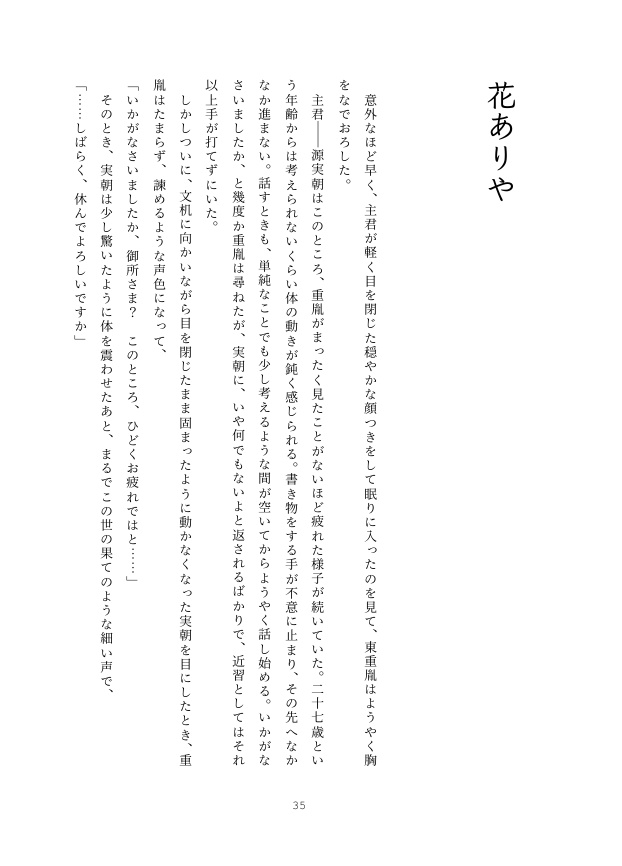 花ありや
　意外なほど早く、主君が軽く目を閉じた穏やかな顔つきをして眠りに入ったのを見て、東重胤はようやく胸
をなでおろした。
　主君――源実朝はこのところ、重胤がまったく見たことがないほど疲れた様子が続いていた。二十七歳とい
う年齢からは考えられないくらい体の動きが鈍く感じられる。書き物をする手が不意に止まり、その先へなか
なか進まない。話すときも、単純なことでも少し考えるような間が空いてからようやく話し始める。いかがな
さいましたか、と幾度か重胤は尋ねたが、実朝に、いや何でもないよと返されるばかりで、近習としてはそれ
以上手が打てずにいた。
　しかしついに、文机に向かいながら目を閉じたまま固まったように動かなくなった実朝を目にしたとき、重
胤はたまらず、諫めるような声色になって、
「いかがなさいましたか、御所さま？　このところ、ひどくお疲れではと……」
　そのとき、実朝は少し驚いたように体を震わせたあと、まるでこの世の果てのような細い声で、
「……しばらく、休んでよろしいですか」
35